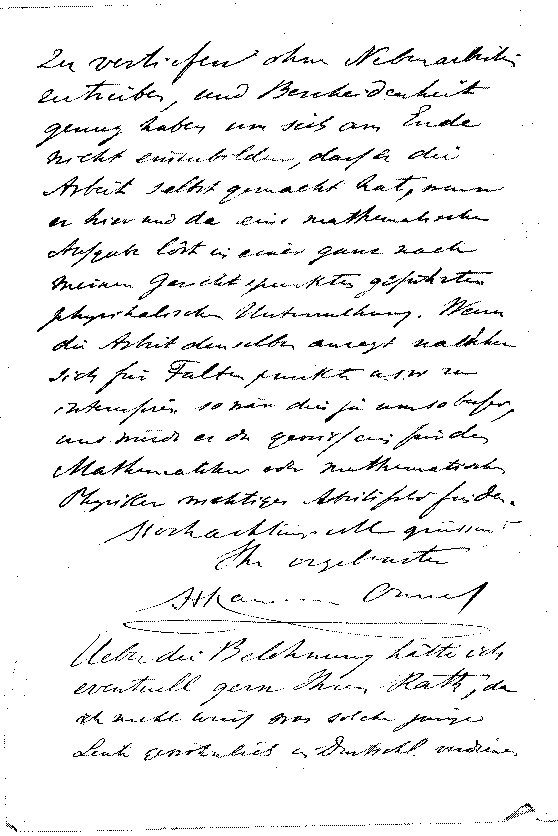 zu vertiefen ohne Nebenarbeiten
zu treiben, und Bescheidenheit
genug haben um sich am Ende
nicht einzubilden, dass er die
Arbeit selbst gemacht hat, wenn
er hier und da eine mathematische
Aufgabe löst in einer ganz nach
meinen Gesichtspunkten geführten
physikalischen Untersuchung. Wenn
die Arbeit denselben anregt
sich für Faltenpunkte usw zu
interessiren so wäre dies ja umso besser,
und würde er da gewiss ein für den
Mathematiker oder mathematischen
Physiker wichtiges Arbeitsfeld finden.
Hochachtungsvoll grüssend
Ihr ergebenster
H Kamerlingh Onnes
Ueber die Belohnung hätte ich
eventuell gern Ihren Rath, da
ich nicht weiss was solche junge
Leute gewöhnlich in Deutschl. verdienen